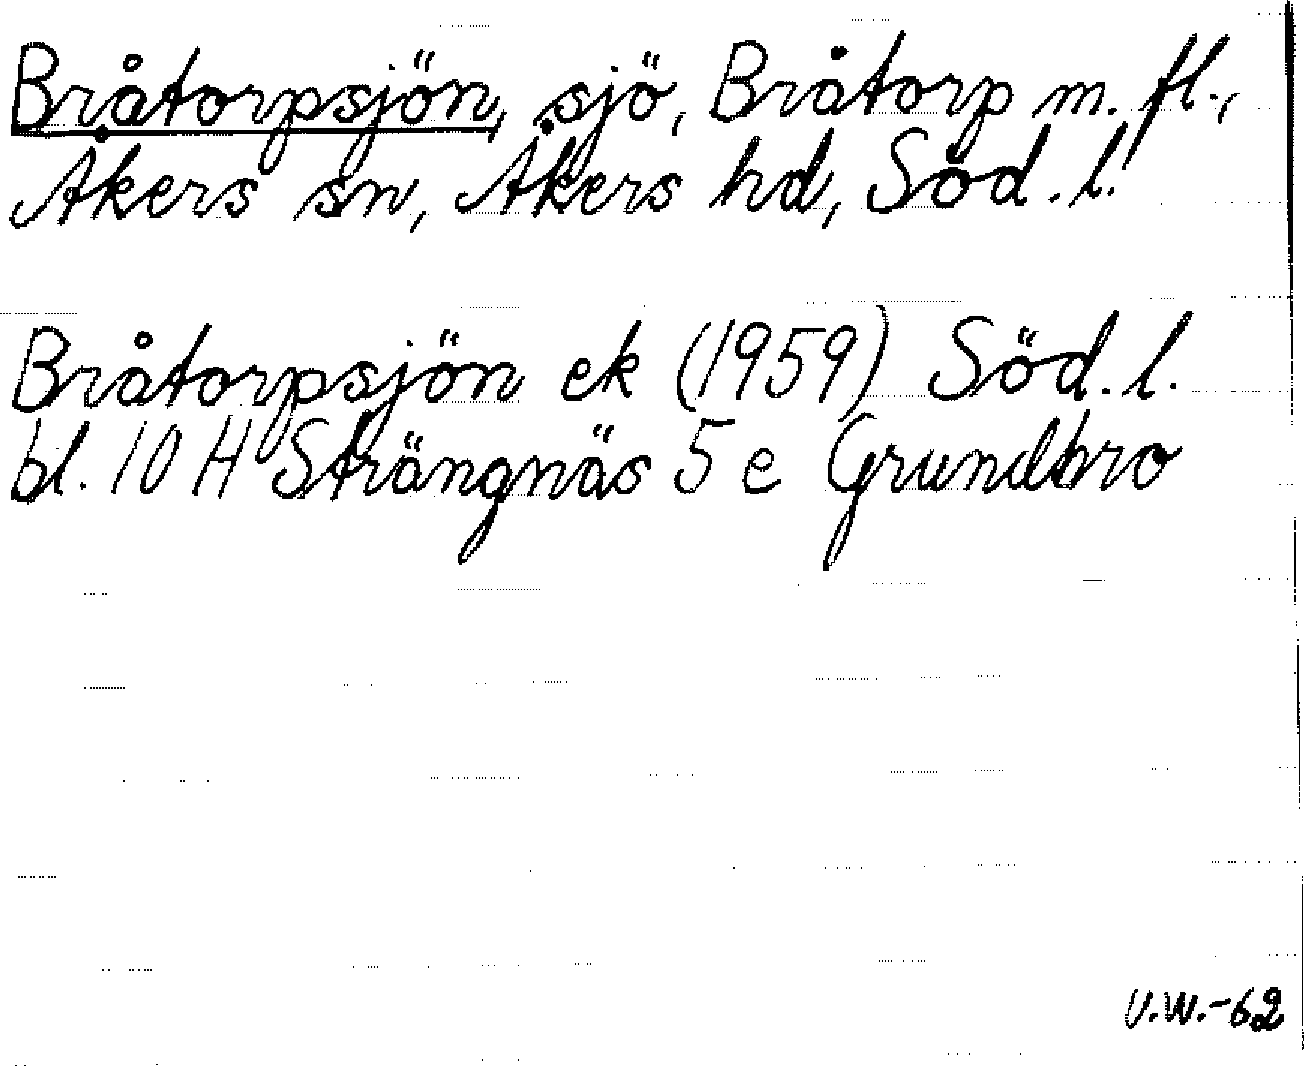 Bråtorpsjön, sjö, Bråtorp m. fl.,
Åkers sn, Åkers hd, Söd. l.
Bråtorpsjön ek (1959) Söd. l.
bl. 10 H Strängnäs 5 e Grundbro
V.W.-62